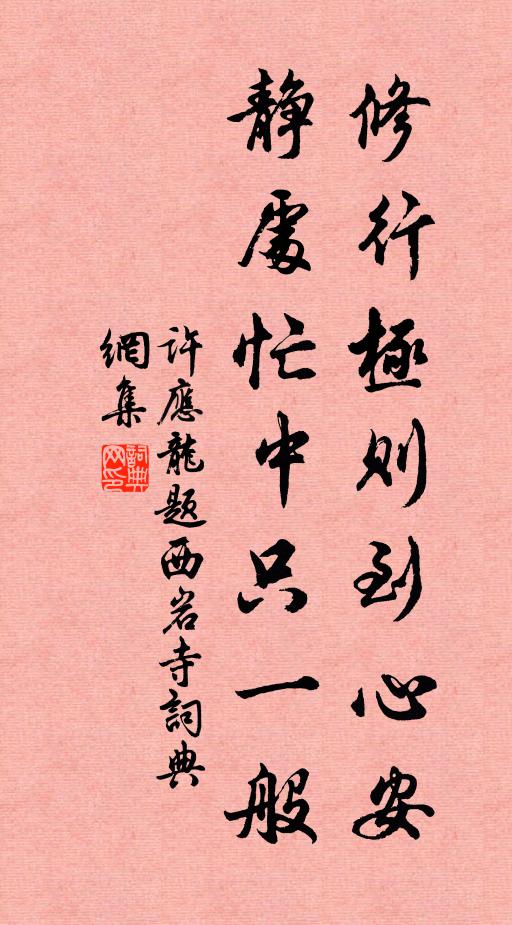 修行極則到心安
靜處忙中只一般
許應龍题西岩寺詞典
網集
詞典
网印